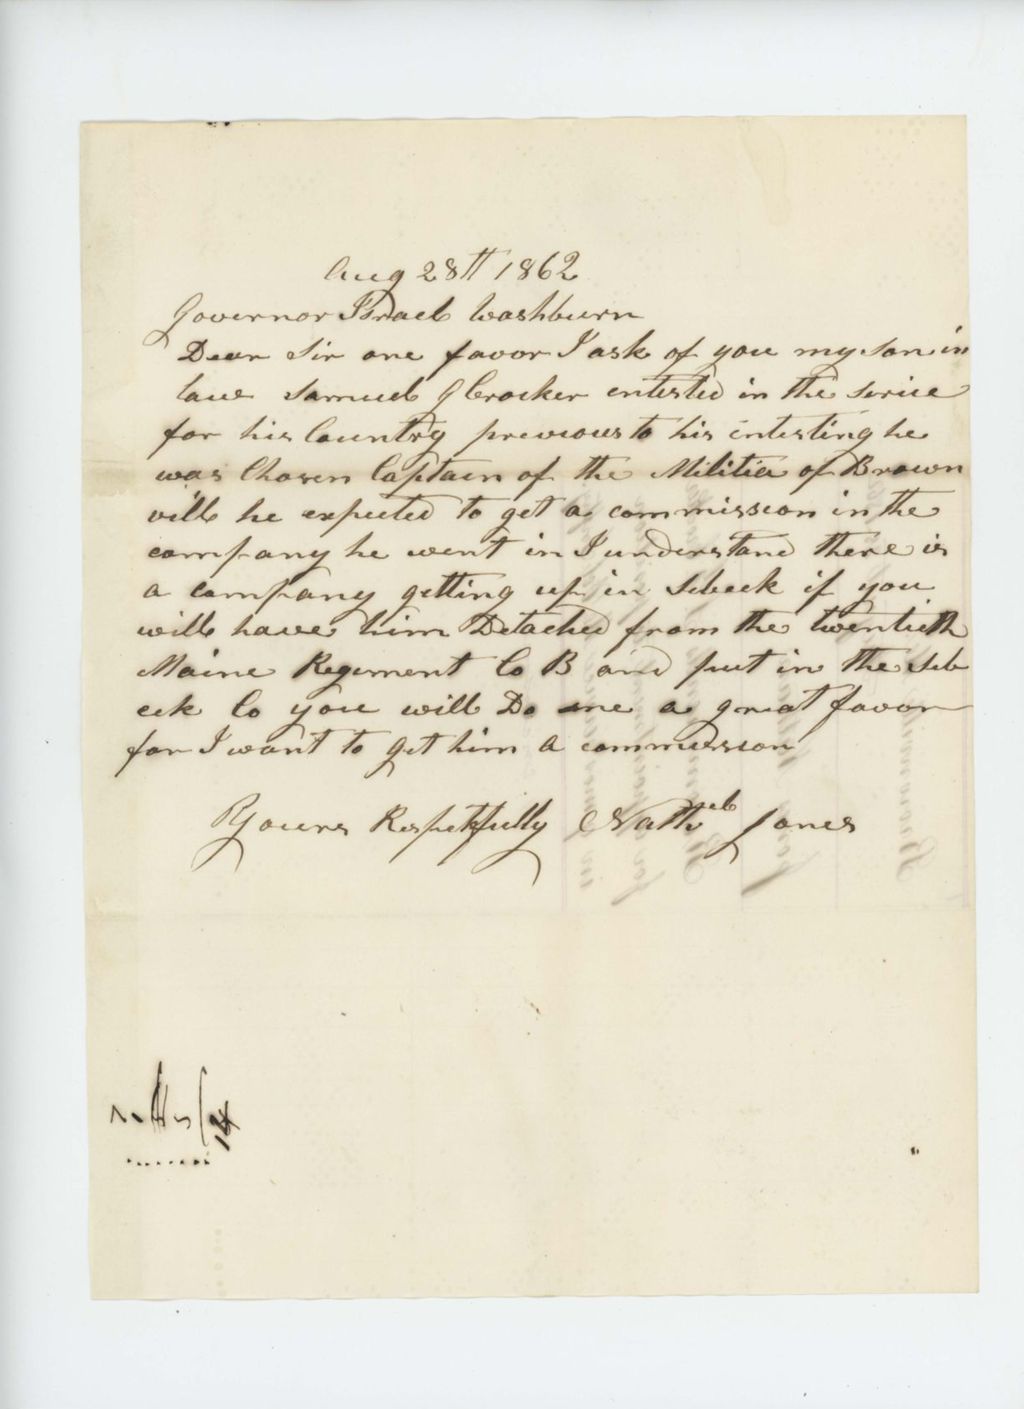 Aug 28th 1862
Governor Israel Washburn
Dear Sir one favor I ask of you my son in
law Samuel G Crocker entisted in the servise
for his Country previous to his entisting he
was Chosen Captain of the Militia of Brown
vill he expected to get a commission in the
company he went in I understand there is
a company getting up in Sebeck if you
will have him Detached from the twentieth
Maine Regiment Co B and put in the Seb
eck Co you will Do me a great favor
for I want to get him a commission
Yours Respetkfully Nathel Jones